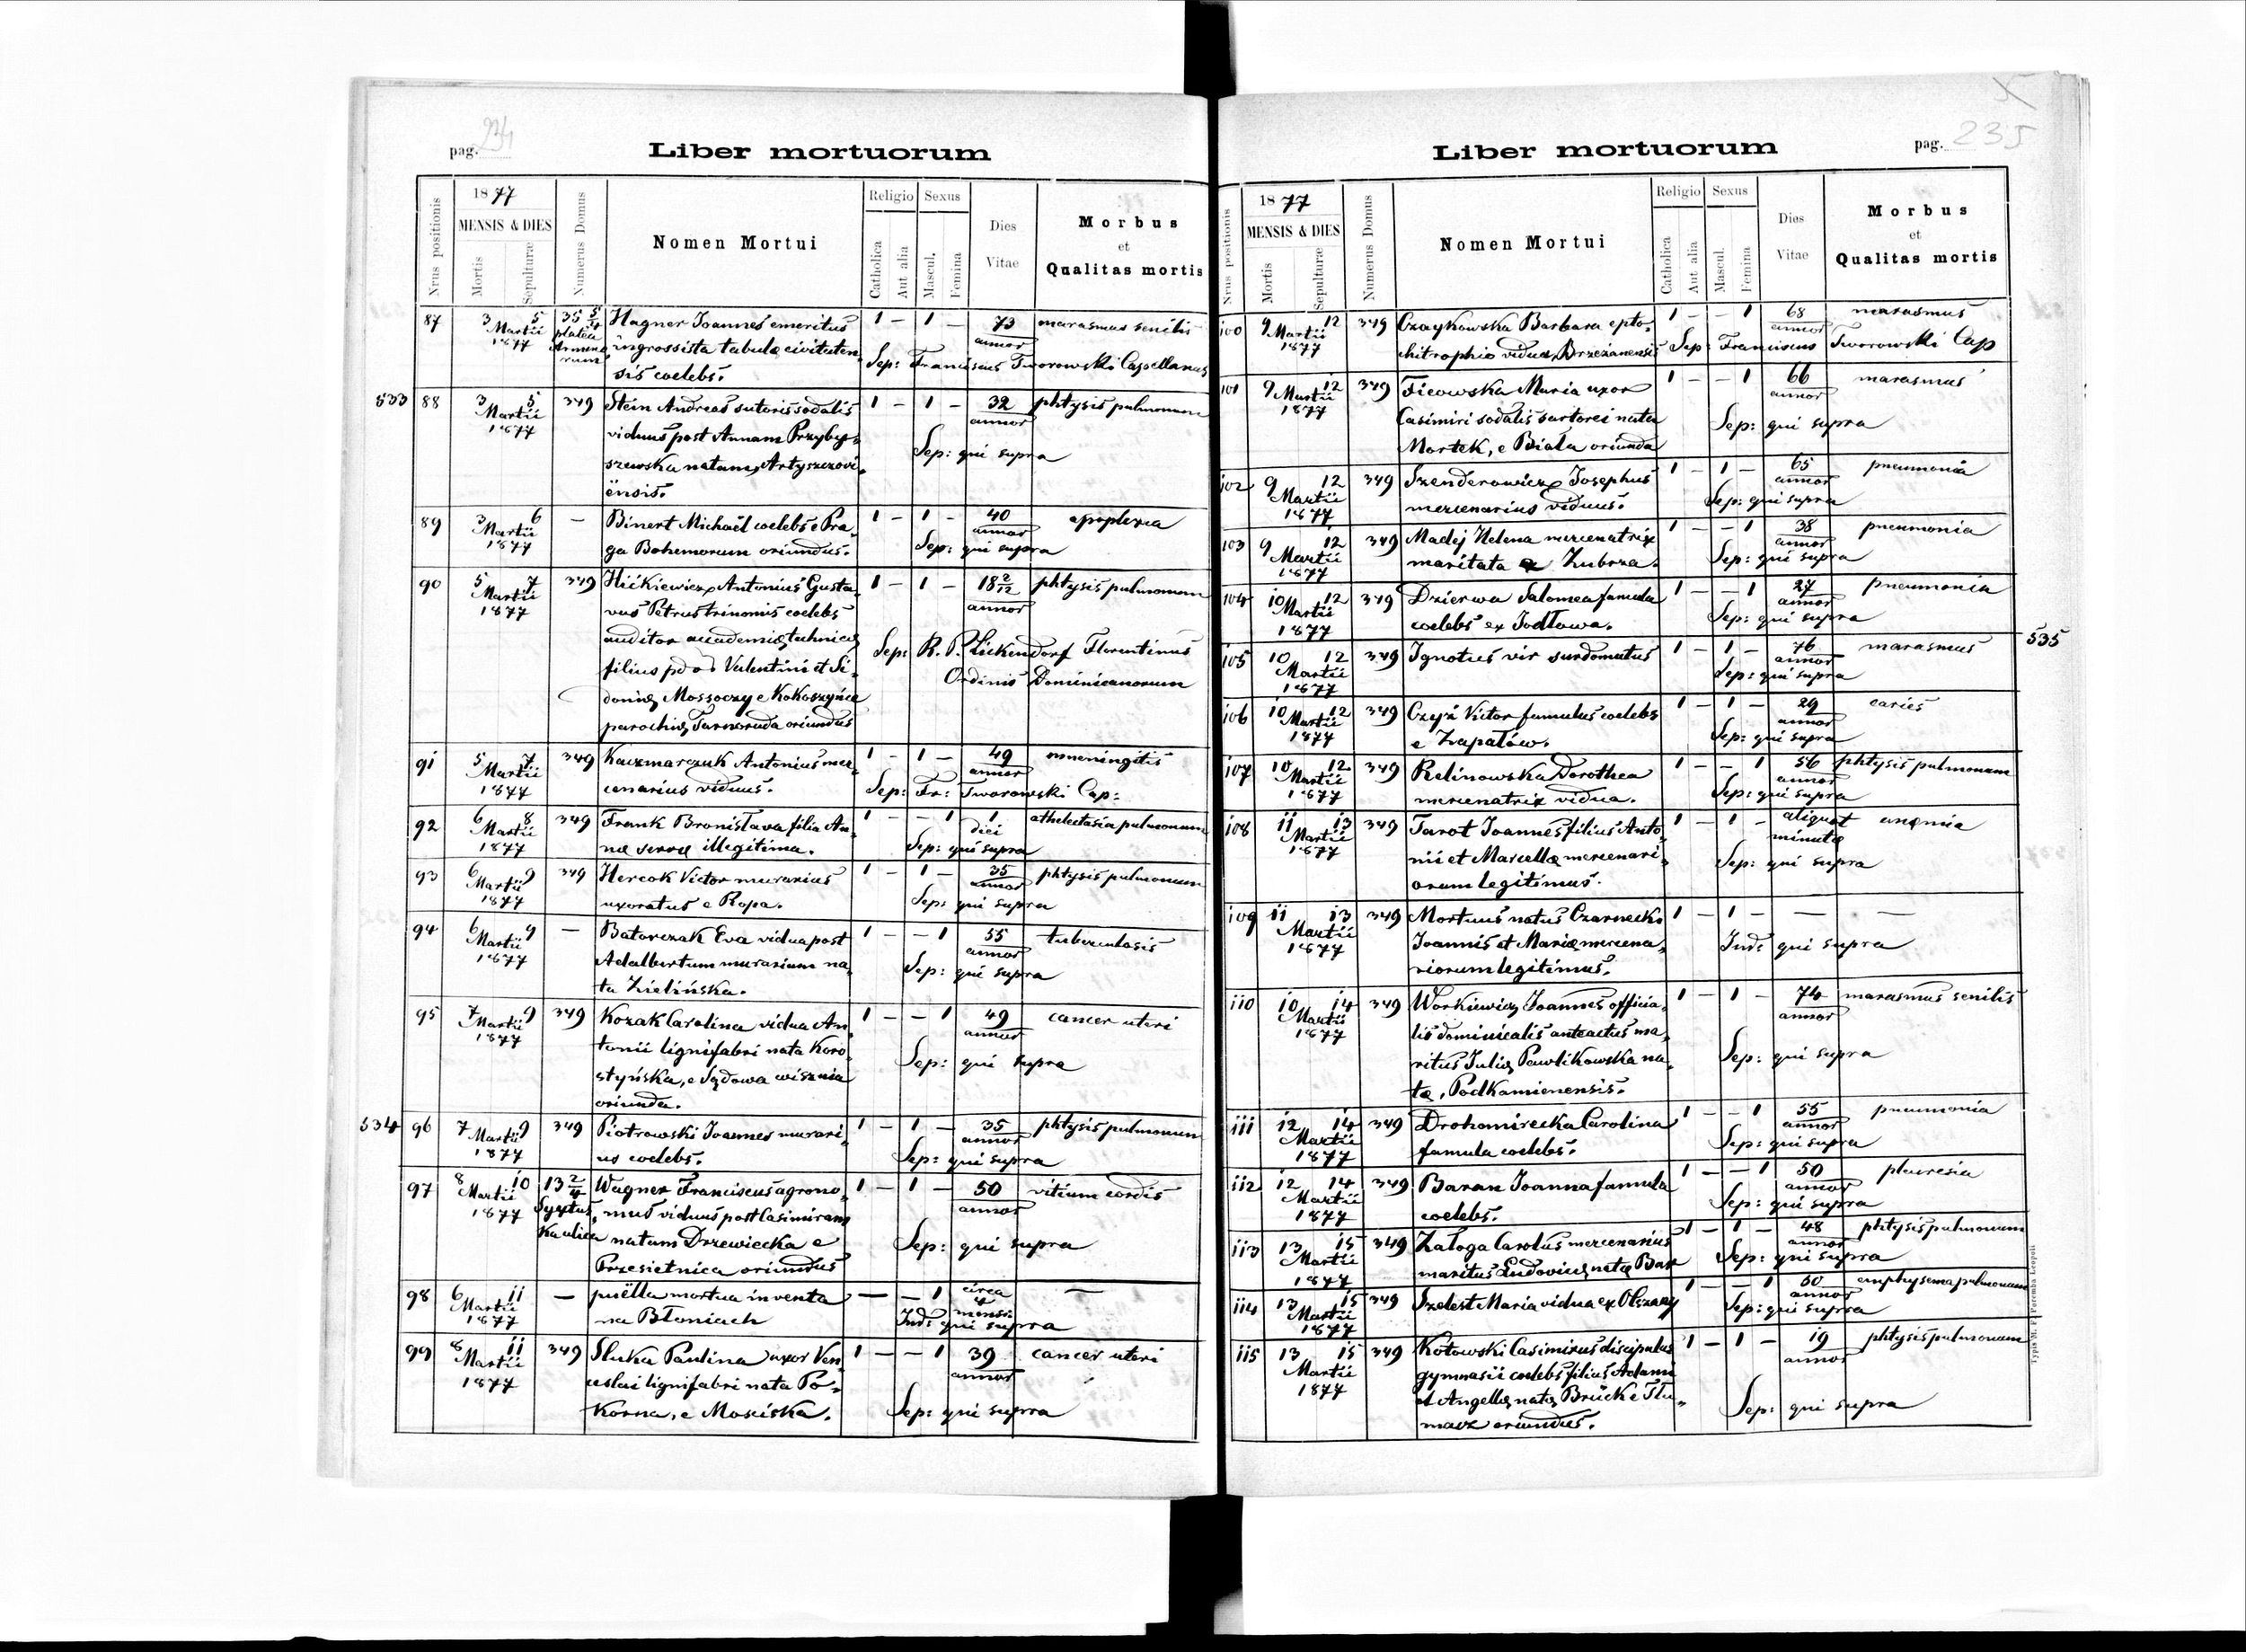 pag. 234
Liber mortuorum
Nrus positionis
1877
MENSIS & DIES
Mortis
Sepulturæ
Numerus Domus
Nomen Mortui
Religio
Catholica
Aut alia
Sexus
Mascul.
Femina
Dies
Vitae
Morbus
et
Qualitas mortis
87 3 5 35 5/4 Hagner Joannes emeritus 1 - 1 - 73 marasmus senilis
Martii platea ingrossista tabulæ civitaten annor
1877 Armenorum sis coelebs. Sep: Franciscus Tworowski Capellanus
533 88 3 5 349 Stein Andreas sutoris sodalis 1 - 1 - 32 phtysis pulmonum
Martii viduus post Annam Przyby- annor
1877 szewska natam, Artyszczovi- Sep: qui supra
ënsis.
89 3 6 - Binert Michaël coelebs e Pra 1 - 1 - 40 apoplexia
Martii ga Bohemorum oriundus. annor
1877 Sep: qui supra
90 5 7 349 Hićkiewicz Antonius Gusta- 1 - 1 - 18 2/12 phtysis pulmonum
Martii vus Petrus trinomis coelebs annor
1877 auditor academiæ technicæ
filius Valentini et Si- Sep: R. P. Lickendorf Florentinus
doniæ Moszoczy e Kokoszyńce Ordinis Dominicanorum
parochiæ Tarnoruda oriundus
91 5 7 349 Kaczmarczuk Antonius mer- 1 - 1 - 49 meningitis
Martii cenarius viduus. annor
1877 Sep: Fr: Tworowski Cap:
92 6 8 349 Frank Bronisława filia An- 1 - - 1 1 athelectasia pulmonum
Martii næ servæ illegitima. diei
1877 Sep: qui supra
93 6 9 349 Hercok Victor murarius 1 - 1 - 35 phtysis pulmonum
Martii uxoratus e Ropa. annor
1877 Sep: qui supra
94 6 9 - Batorczak Eva vidua post 1 - - 1 55 tuberculosis
Martii Adalbertum murarium na- annor
1877 ta Zielińska. Sep: qui supra
95 7 9 349 Kozak Carolina vidua An- 1 - - 1 49 cancer uteri
Martii tonii lignifabri nata Koro- annor
1877 styńska, e Sądowa wisznia Sep: qui supra
oriunda.
534 96 7 9 349 Piotrowski Joannes murari- 1 - 1 - 35 phtysis pulmonum
Martii us coelebs. annor
1877 Sep: qui supra
97 8 10 13 2/4 Wagner Franciscus agrono- 1 - 1 - 50 vitium cordis
Martii Syxtus- mus viduus post Casimiram annor
1877 ka ulica natam Drzewiecka e Sep: qui supra
Przesietnica oriundus
98 6 11 - puëlla mortua inventa - - - 1 circa 4 mensi -
Martii na Błoniach Ind: qui supra
1877
99 8 11 349 Sluka Paulina uxor Ven- 1 - - 1 39 cancer uteri
Martii ceslai lignifabri nata Po- annor
1877 korna, e Mosciska. Sep: qui supra
pag. 235
Liber mortuorum
Nrus positionis
1877
MENSIS & DIES
Mortis
Sepulturæ
Numerus Domus
Nomen Mortui
Religio
Catholica
Aut alia
Sexus
Mascul.
Femina
Dies
Vitae
Morbus
et
Qualitas mortis
100 9 12 349 Czaykowska Barbara epto- 1 - - 1 68 marasmus
Martii chitrophio vidua, Brzeżanensis annor
1877 Sep: Franciscus Tworowski Cap
101 9 12 349 Ficowska Maria uxor 1 - - 1 66 marasmus
Martii Casimiri sodalis sartorei nata annor
1877 Mortek, e Biala oriunda Sep: qui supra
102 9 12 349 Szenderowicz Josephus 1 - 1 - 65 pneumonia
Martii mercenarius viduus. annor
1877 Sep: qui supra
103 9 12 349 Madej Helena mercenatrix 1 - - 1 38 pneumonia
Martii maritata e Zubrza. annor
1877 Sep: qui supra
104 10 12 349 Dzierwa Salomea famula 1 - - 1 27 pneumonia
Martii coelebs ex Jodłowa. annor
1877 Sep: qui supra
105 10 12 349 Ignotus vir surdomutus 1 - 1 - 76 marasmus 535
Martii annor
1877 Sep: qui supra
106 10 12 349 Czyż Victor famulus coelebs 1 - 1 - 29 caries
Martii e Zapałów. annor
1877 Sep: qui supra
107 10 12 349 Relinowska Dorothea 1 - - 1 56 phtysis pulmonum
Martii mercenatrix vidua. annor
1877 Sep: qui supra
108 11 13 349 Tarot Joannes filius Anto- 1 - 1 - aliquot anæmia
Martii nii et Marcellæ mercenari- minutæ
1877 orum legitimus. Sep: qui supra
109 11 13 349 Mortuus natus Czarnecko 1 - 1 - - -
Martii Joannis et Mariæ mercena- Ind: qui supra
1877 riorum legitimus.
110 10 14 349 Workiewicz Joannes officia- 1 - 1 - 74 marasmus senilis
Martii lis dominicalis anteactus ma- annor
1877 ritus Juliæ Pawlikowska na- Sep: qui supra
tæ, Podkamienensis.
111 12 14 349 Drohomirecka Carolina 1 - - 1 55 pneumonia
Martii famula coelebs. annor
1877 Sep: qui supra
112 12 14 349 Baran Joanna famula 1 - - 1 50 pleuresia
Martii coelebs. annor
1877 Sep: qui supra
113 13 15 349 Załoga Carolus mercenarius 1 - 1 - 48 phtysis pulmonum
Martii maritus Ludovicæ natæ Bar annor
1877 Sep: qui supra
114 13 15 349 Szelest Maria vidua ex Olszany 1 - - 1 50 emphysema pulmonum
Martii annor
1877 Sep: qui supra
115 13 15 349 Kotowski Casimirus discipulus 1 - 1 - 19 phtysis pulmonum
Martii gymnasii coelebs filius Adami annor
1877 et Angellæ natæ Brück e Tłu- Sep: qui supra
macz oriundus.